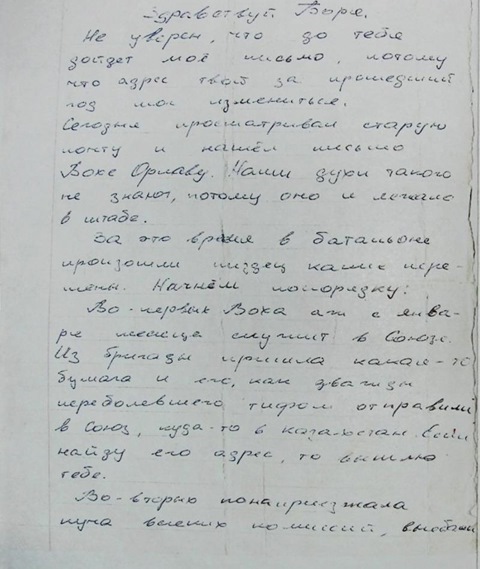 Здравствуй Боря.
Не уверен, что до тебя
дойдет моё письмо, потому
что адрес твой за прошедший
год мог измениться.
Сегодня просматривал старую
почту и нашёл письмо
Вове Орлову. Наши духи такого
не знают, потому оно и лежало
в штабе.
За это время в батальоне
произошли пиздец какие пере-
мены. Начнём попорядку:
Во-первых Вова аж с янва-
ре месяце служит в Союзе.
Из бригады пришла какая-то
бумага и его, как дважды
переболевшего тифом отправили
в Союз, куда-то в Казахстан. Если
найду его адрес, то вышлю
тебе.
Во-вторых понаприезжала
куча всяких комиссий,